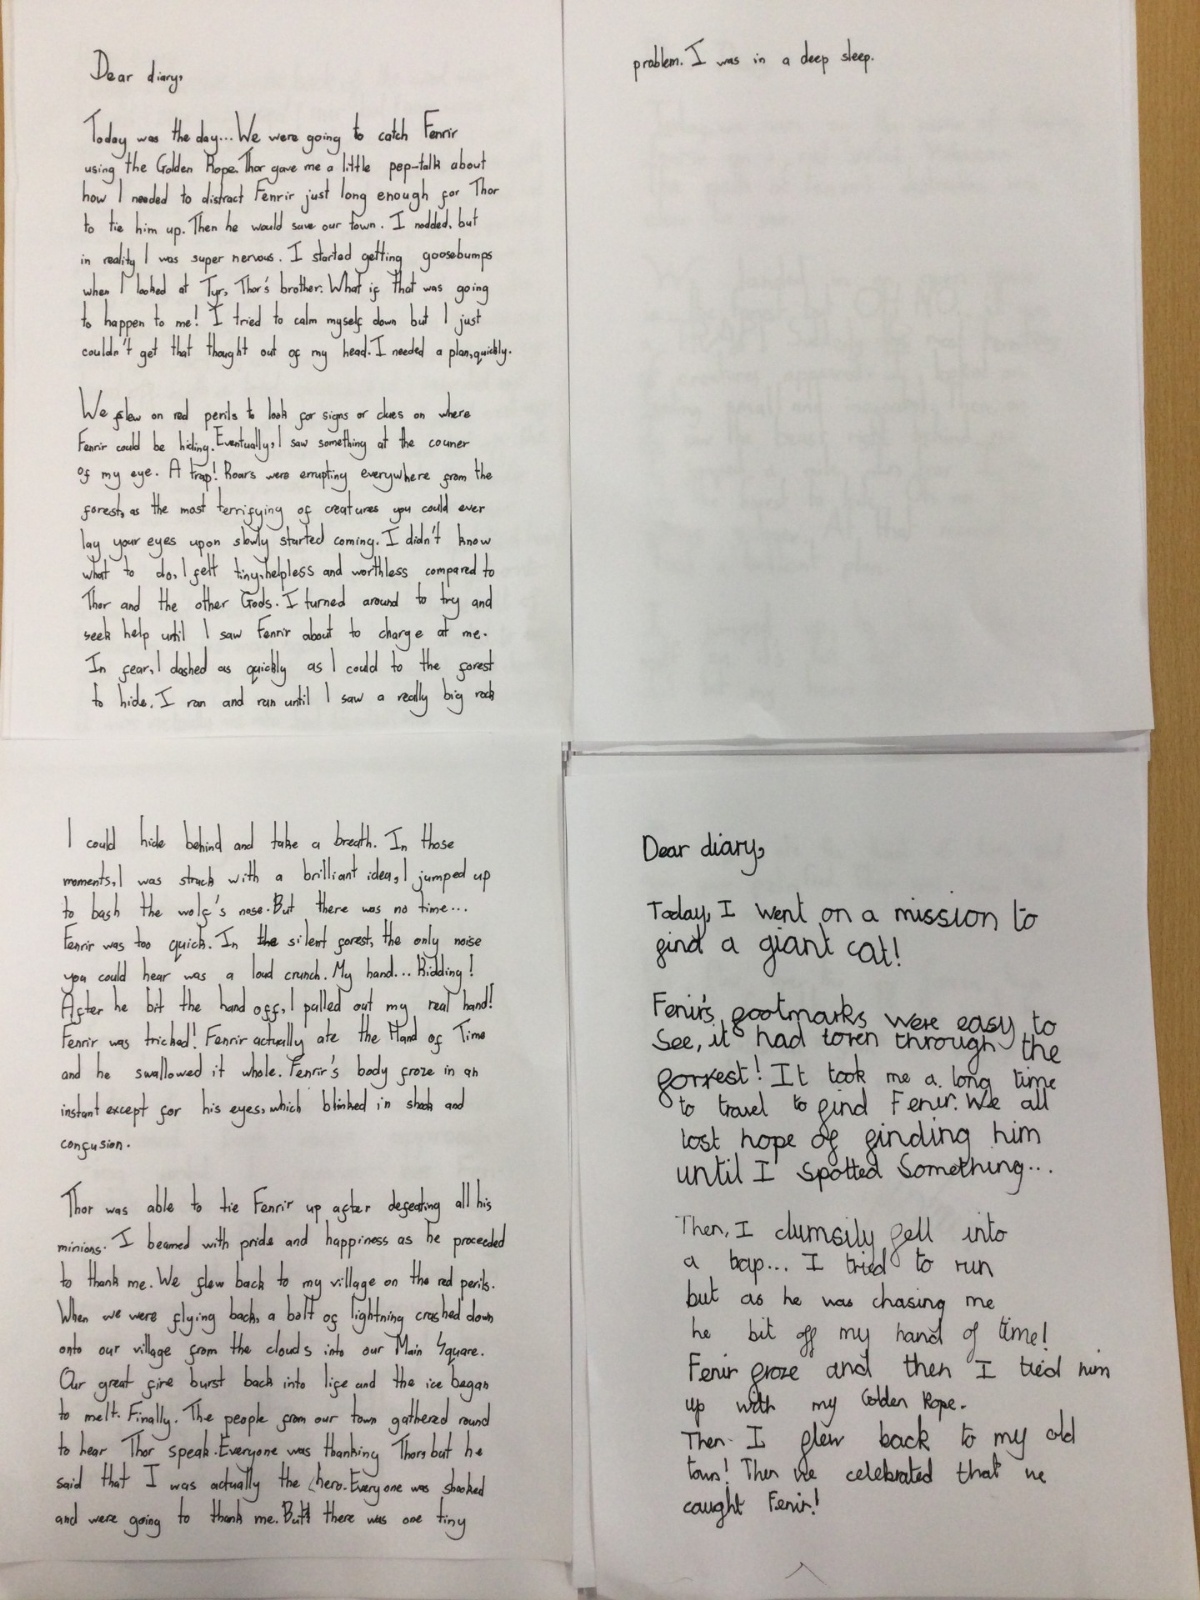 Dear diary,
Today was the day... We were going to catch Fenrir
using the Golden Rope. Thor gave me a little pep-talk about
how I needed to distract Fenrir just long enough for Thor
to tie him up. Then he would save our town. I nodded, but
in reality I was super nervous. I started getting goosebumps
when I looked at Tyr, Thor's brother. What if that was going
to happen to me! I tried to calm myself down but I just
couldn't get that thought out of my head. I needed a plan, quickly.
We flew on red perils to look for signs or clues on where
Fenrir could be hiding. Eventually, I saw something at the couner
of my eye. A trap! Roars were errupting everywhere from the
forest, as the most terrifying of creatures you could ever
lay your eyes upon slowly started coming. I didn't know
what to do, I felt tiny, helpless and worthless compared to
Thor and the other Gods. I turned around to try and
seek help until I saw Fenrir about to charge at me.
In fear, I dashed as quickly as I could to the forest
to hide. I ran and run until I saw a really big rock
I could hide behind and take a breath. In those
moments, I was struck with a brilliant idea, I jumped up
to bash the wolf's nose. But there was no time...
Fenrir was too quick. In the silent forest, the only noise
you could hear was a loud crunch. My hand... Kidding!
After he bit the hand off, I pulled out my real hand!
Fenrir was tricked! Fenrir actually ate the Hand of Time
and he swallowed it whole. Fenrir's body froze in an
instant except for his eyes, which blinked in shock and
confusion.
Thor was able to tie Fenrir up after defeating all his
minions. I beamed with pride and happiness as he proceeded
to thank me. We flew back to my village on the red perils.
When we were flying back, a bolt of lightning crashed down
onto our village from the clouds into our Main Square.
Our great fire burst back into life and the ice began
to melt. Finally. The people from our town gathered round
to hear Thor speak. Everyone was thanking Thor, but he
said that I was actually the hero. Everyone was shocked
and were going to thank me. But there was one tiny
problem. I was in a deep sleep.
Dear diary,
Today, I went on a mission to
find a giant cat!
Fenir's footmarks were easy to
See, it had toren through the
forrest! It took me a long time
to travel to find Fenir. We all
lost hope of finding him
until I spotted Something...
Then, I clumsily fell into
a trap... I tried to run
but as he was chasing me
he bit off my hand of time!
Fenir froze and then I tied him
up with my Golden Rope.
Then I flew back to my old
town! Then we celebrated that we
caught Fenir!